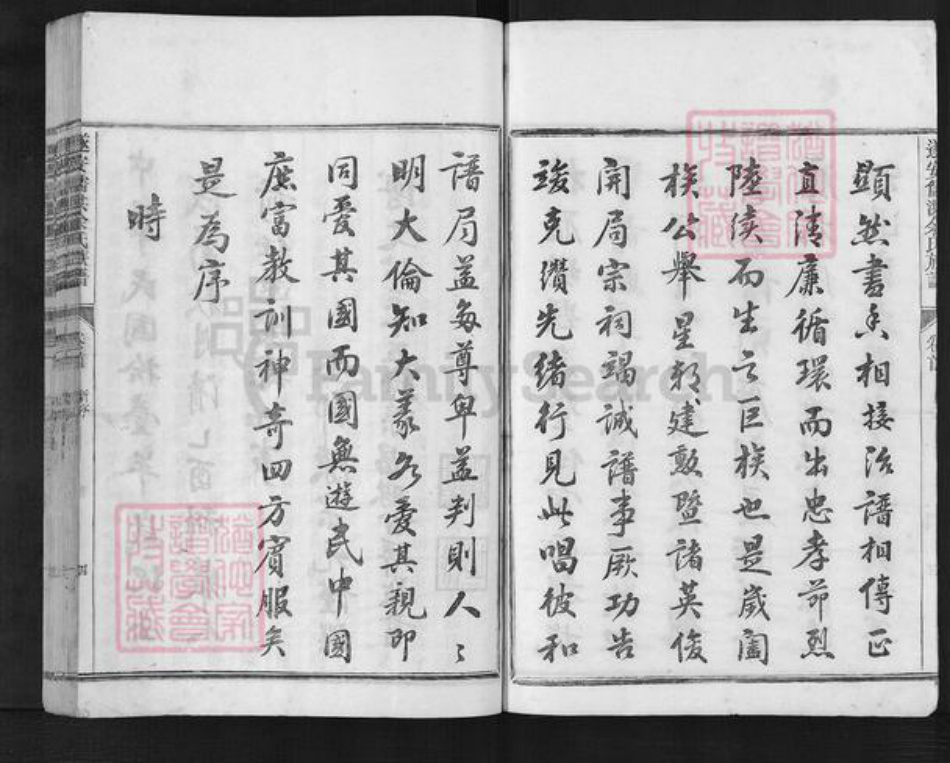 顯然書香相接治譜相傳正
直清廉循環而出忠孝節烈
陸續而生云巨族也是歲闔
族公舉星邦建勲暨諸英俊
開局宗祠竭誠譜事厥功告
竣克纘先緒行見此唱彼和
譜局益每尊卑益判則人〻
明大倫知大義各愛其親即
同愛其國而國無遊民中國
庶富教訓神奇四方賓服矣
是為序
時
FamilySearch